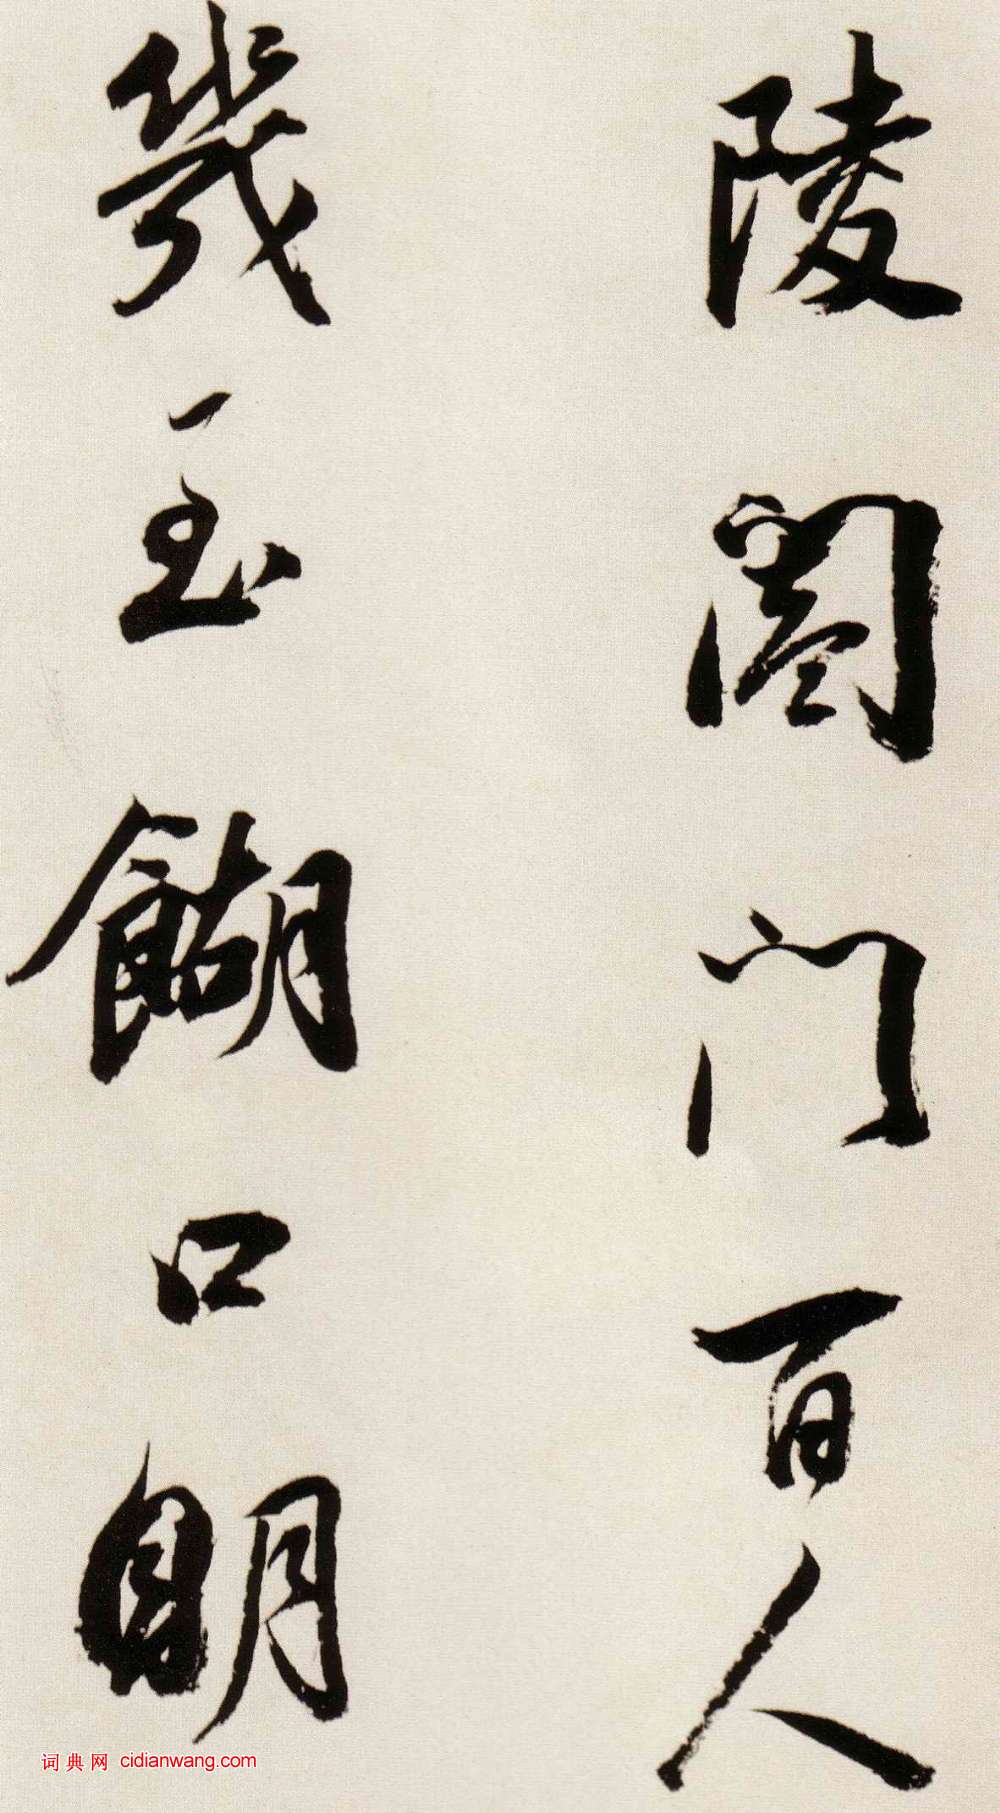 陵阖门百人
幾至餬口明
词典网 cidianwang.com